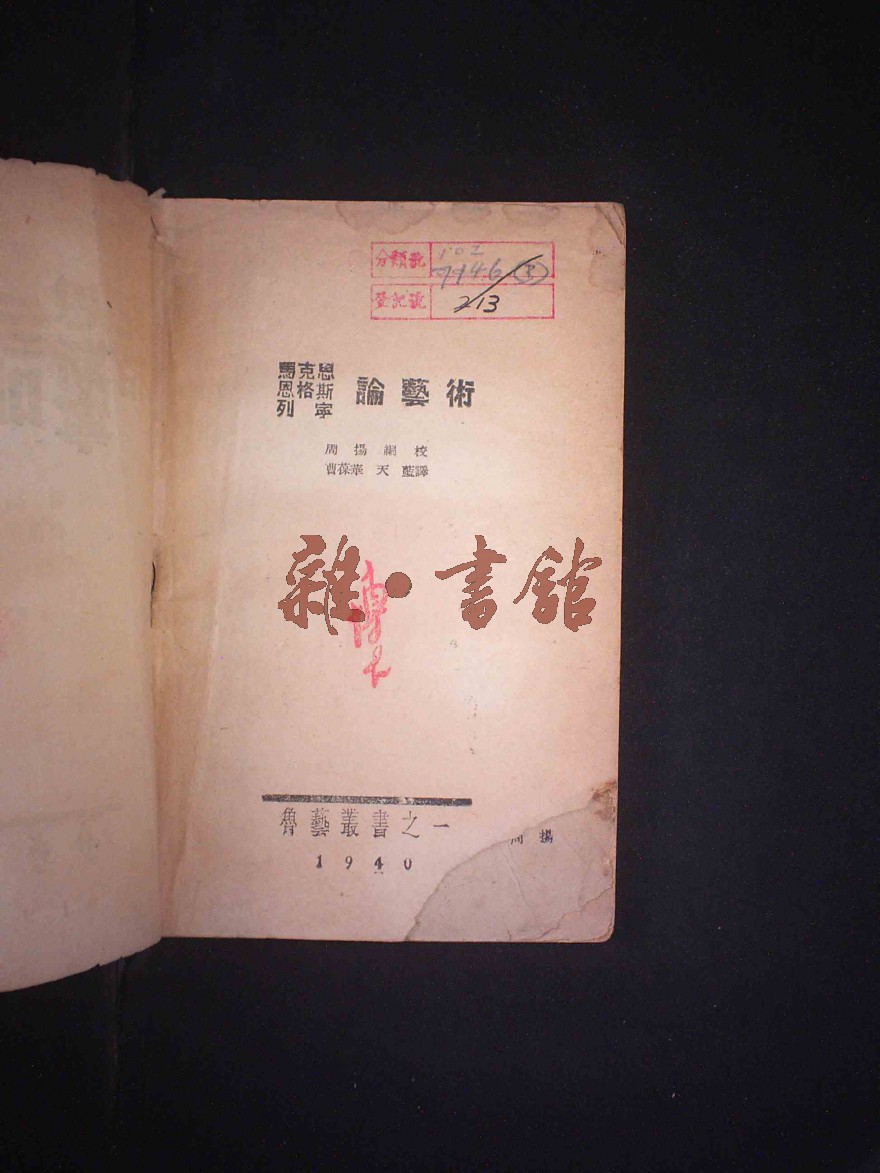 分類號 102
7146(3)
登記號 213
馬克思
恩格斯
列寧
論藝術
周揚編校
曹葆華 天藍譯
雜·書館
魯藝叢書之一
1940
周揚